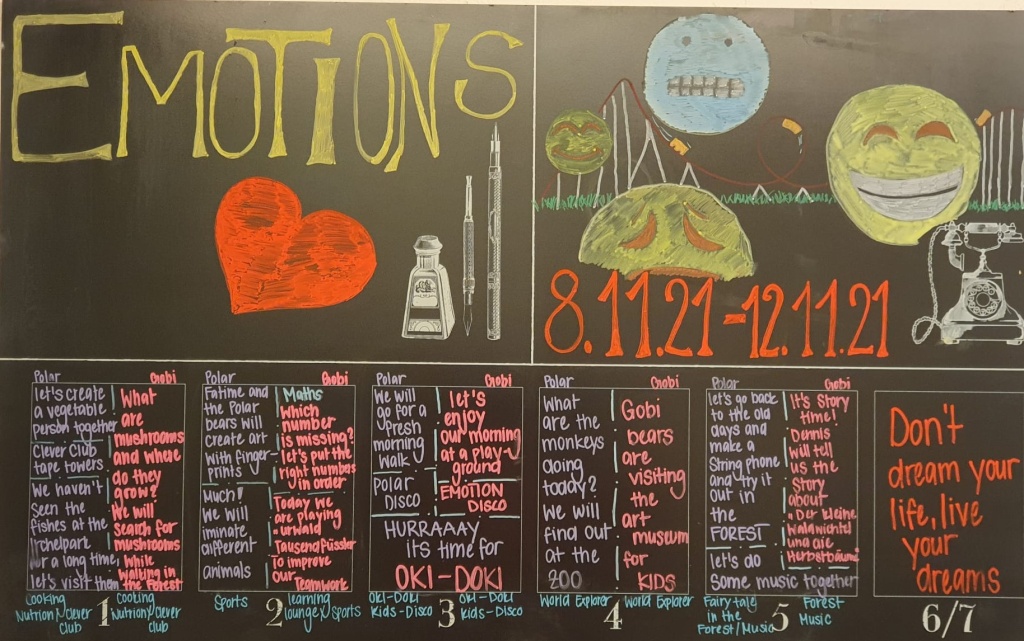 EMOTIONS
8.11.21-12.11.21
Polar
let's create
a vegetable
person together
Clever Club
tape towers
We haven't
seen the
fishes at the
for a long time,
let's visit them
Gobi
What
are
mushrooms
and where
do they
grow?
We will
search for
mushrooms
while
walking in
the Forest
Cooking
Nutrition/Clever
Club
1
Cooking
Nutrition/Clever
Club
Polar
Fatime and
the Polar
bears will
create art
with finger-
prints
Much!
We will
iminate
different
animals
Gobi
Maths
which
number
is missing?
let's put the
right numbers
in order
Today we
are playing
Tausendfüssler
To improve
our
Teamwork
Sports
2
learning
lounge/Sports
Polar
We will
go for a
fresh
morning
walk
POLAR
DISCO
Gobi
let's
enjoy
our morning
at a play-
ground
EMOTION
DISCO
HURRAAAY
its time for
OKI-DOKI
OKI-DOKI
Kids-Disco
3
OKI-DOKI
Kids-Disco
Polar
What
are the
monkeys
doing
today?
We will
find out
at the
ZOO
Gobi
Gobi
bears
are
visiting
the
art
museum
for
KIDS
World Explorer
4
World Explorer
Polar
let's go back
to the old
days and
make a
String phone
and try it
out in
the
FOREST
let's do
Some music together
Gobi
It's Story
time!
Dennis
will tell
us the
Story
about
"Der kleine
Waldwichtel
und die
Herbstbäume"
Fairy tale
in the
Forest/Music
5
Forest
Music
Don't
dream your
life, live
your
dreams
6/7